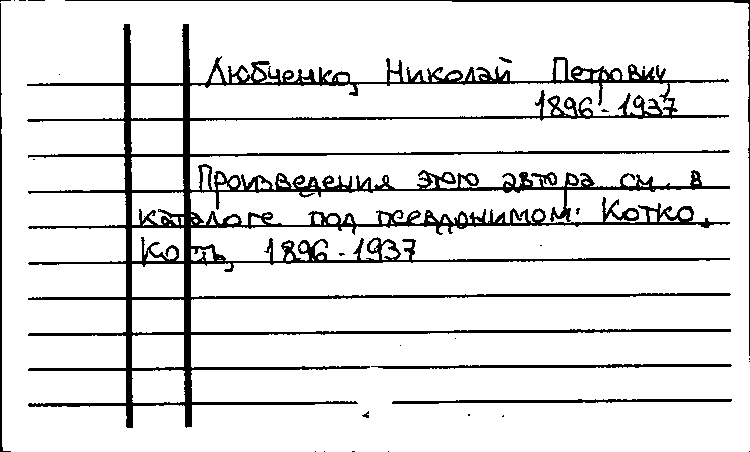 Любченко, Николай Петрович,
1896-1937
Произведения этого автора см. в
каталоге под псевдонимом: Котко,
Кость, 1896-1937